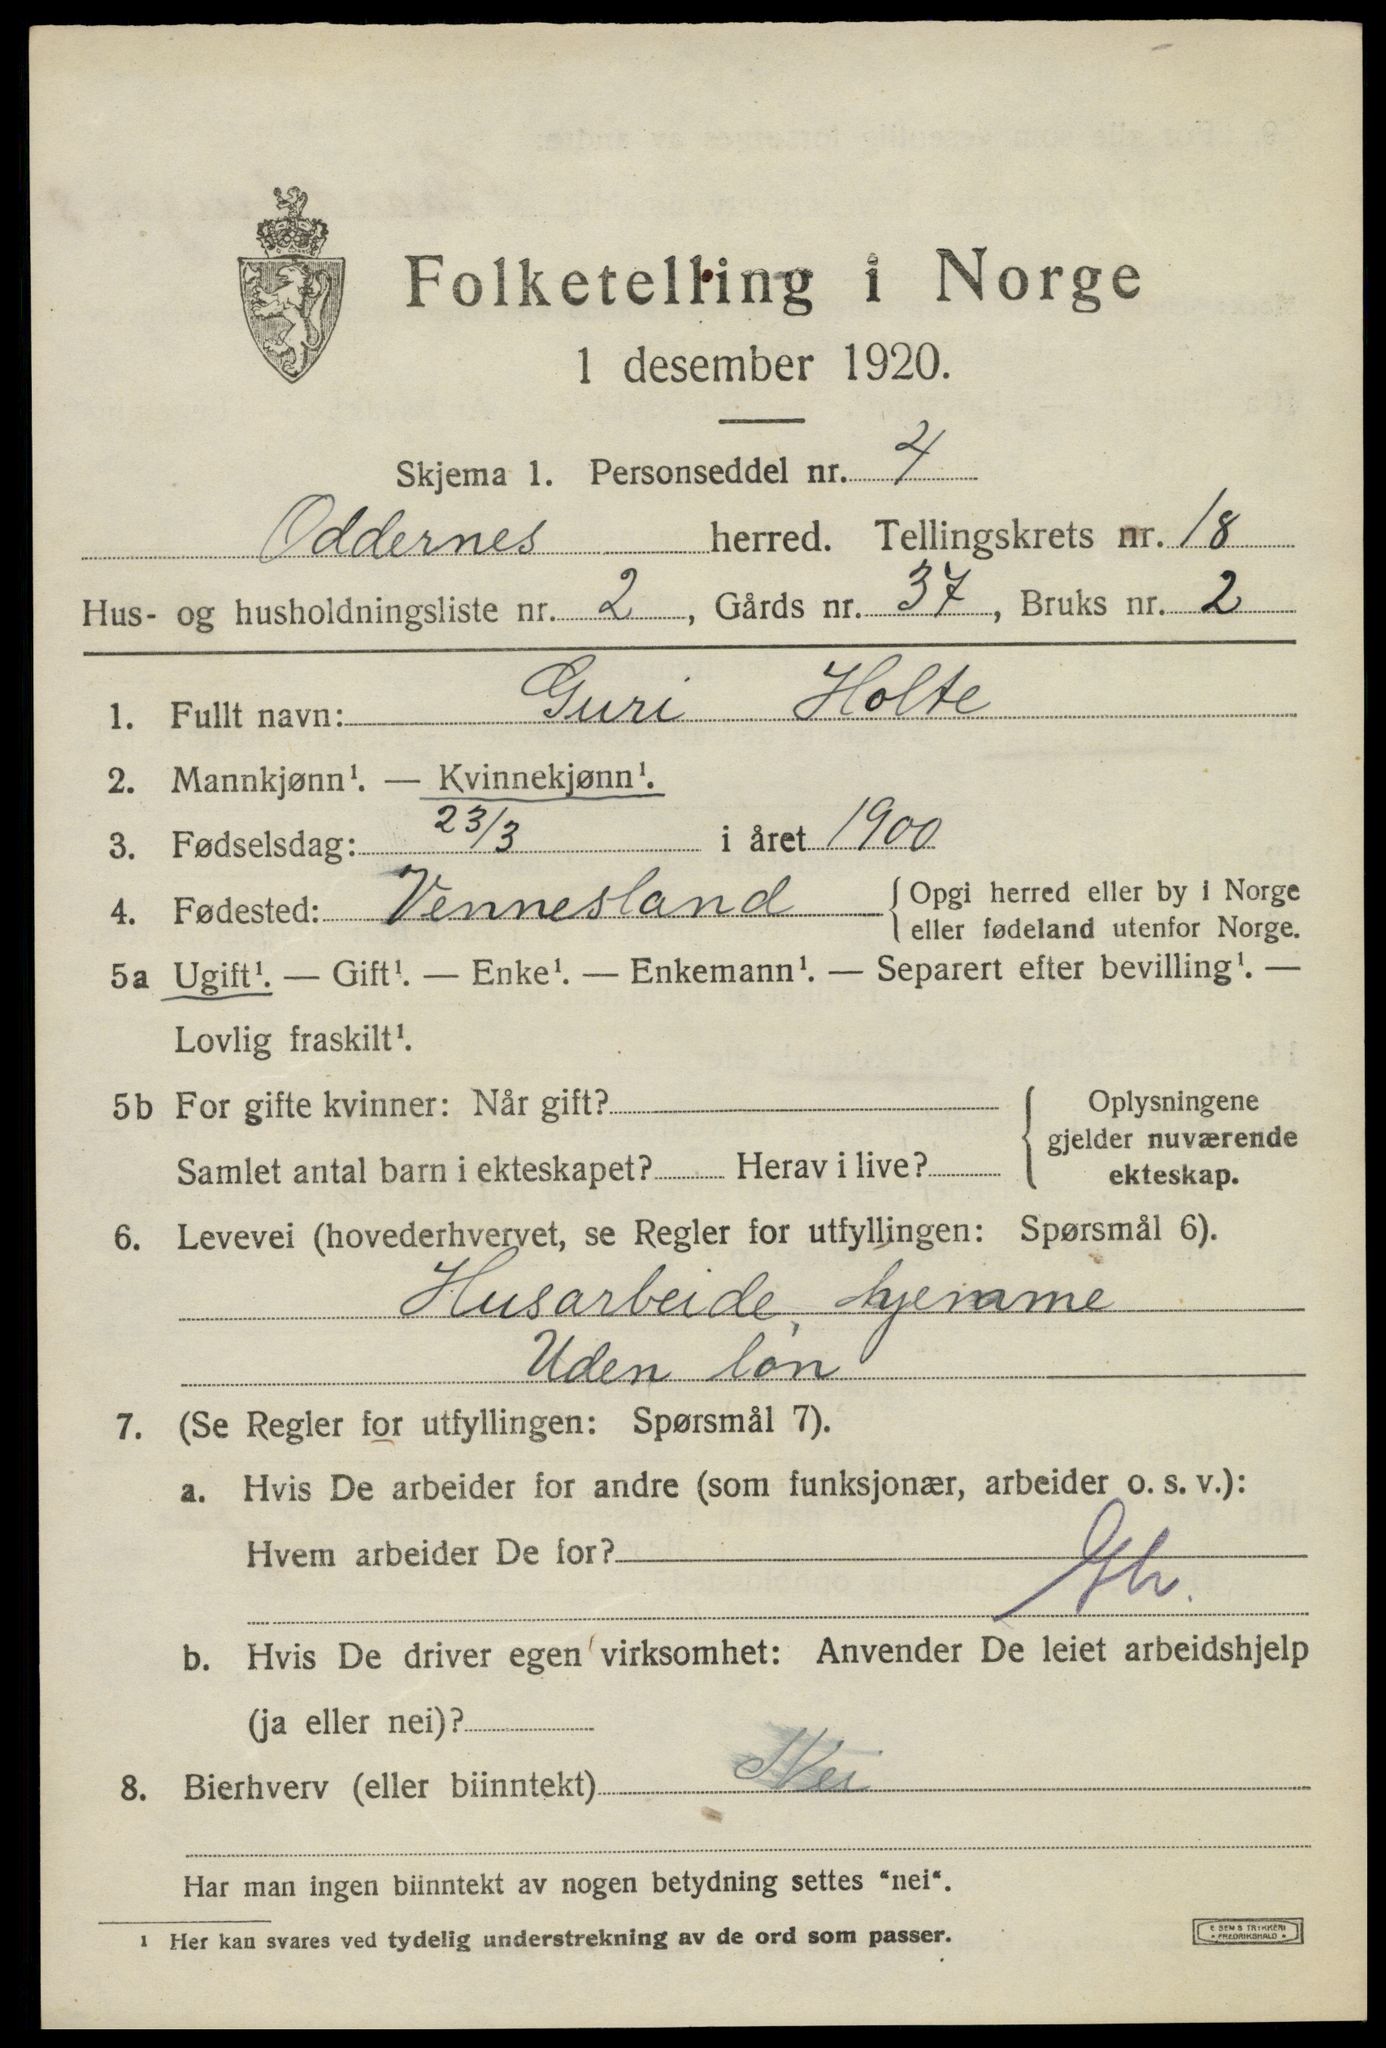 Folketelling i Norge
1 desember 1920.
Skjema 1. Personseddel nr. 4
Oddernes herred. Tellingskrets nr. 18
Hus- og husholdningsliste nr. 2, Gårds nr. 37, Bruks nr. 2
1. Fullt navn: Guri Holte
2. Mannkjønn¹. — Kvinnekjønn¹.
3. Fødselsdag: 23/3 i året 1900
4. Fødested: Vennesland {Opgi herred eller by i Norge
eller fødeland utenfor Norge.
5a Ugift¹. — Gift¹. — Enke¹. — Enkemann¹. — Separert efter bevilling¹. —
Lovlig fraskilt¹.
5b For gifte kvinner: Når gift?
Samlet antal barn i ekteskapet? Herav i live?
{Oplysningene
gjelder nuværende
ekteskap.
6. Levevei (hovederhvervet, se Regler for utfyllingen: Spørsmål 6).
Husarbeide, hjemme
Uden løn
7. (Se Regler for utfyllingen: Spørsmål 7).
a. Hvis De arbeider for andre (som funksjonær, arbeider o. s. v.):
Hvem arbeider De for?
b. Hvis De driver egen virksomhet: Anvender De leiet arbeidshjelp
(ja eller nei)?
8. Bierhverv (eller biinntekt) Nei
Har man ingen biinntekt av nogen betydning settes "nei".
¹ Her kan svares ved tydelig understrekning av de ord som passer.
E SEMS TRYKKERI
* FREDRIKSHALD *